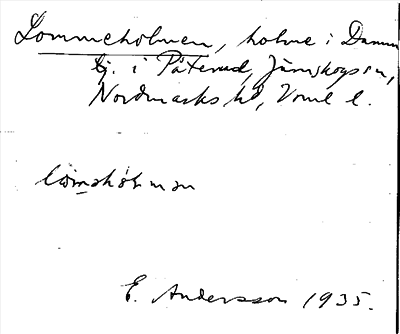 Lommeholmen, holme i Damm
tj. i Påterud, Järnskogs sn,
Nordmarks hd, Vrml l.
E. Andersson 1935.